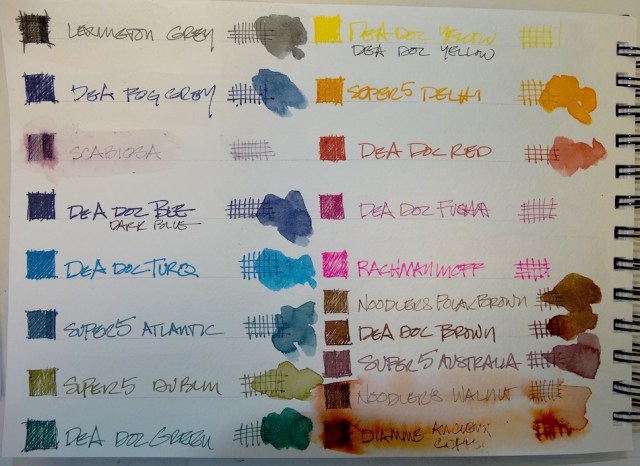 LEXINGTON GREY
DE A FOG GREY
SCABIOSA
DE A DOC BLE
DARK BLUE
DE A DOC TURQ
SUPER5 ATLANTIC
SUPER5 DUBLIN
DE A DOC GREEN
DE A DOC YELLOW
DE A DOC YELLOW
SUPER5 DELHI
DE A DOC RED
DE A DOC FUSHIA
RACHMANINOFF
NOODLERS POLAR BROWN
DE A DOC BROWN
SUPER5 AUSTRALIA
NOODLERS WALNUT
DIAMINE ANCIENT
COPPER